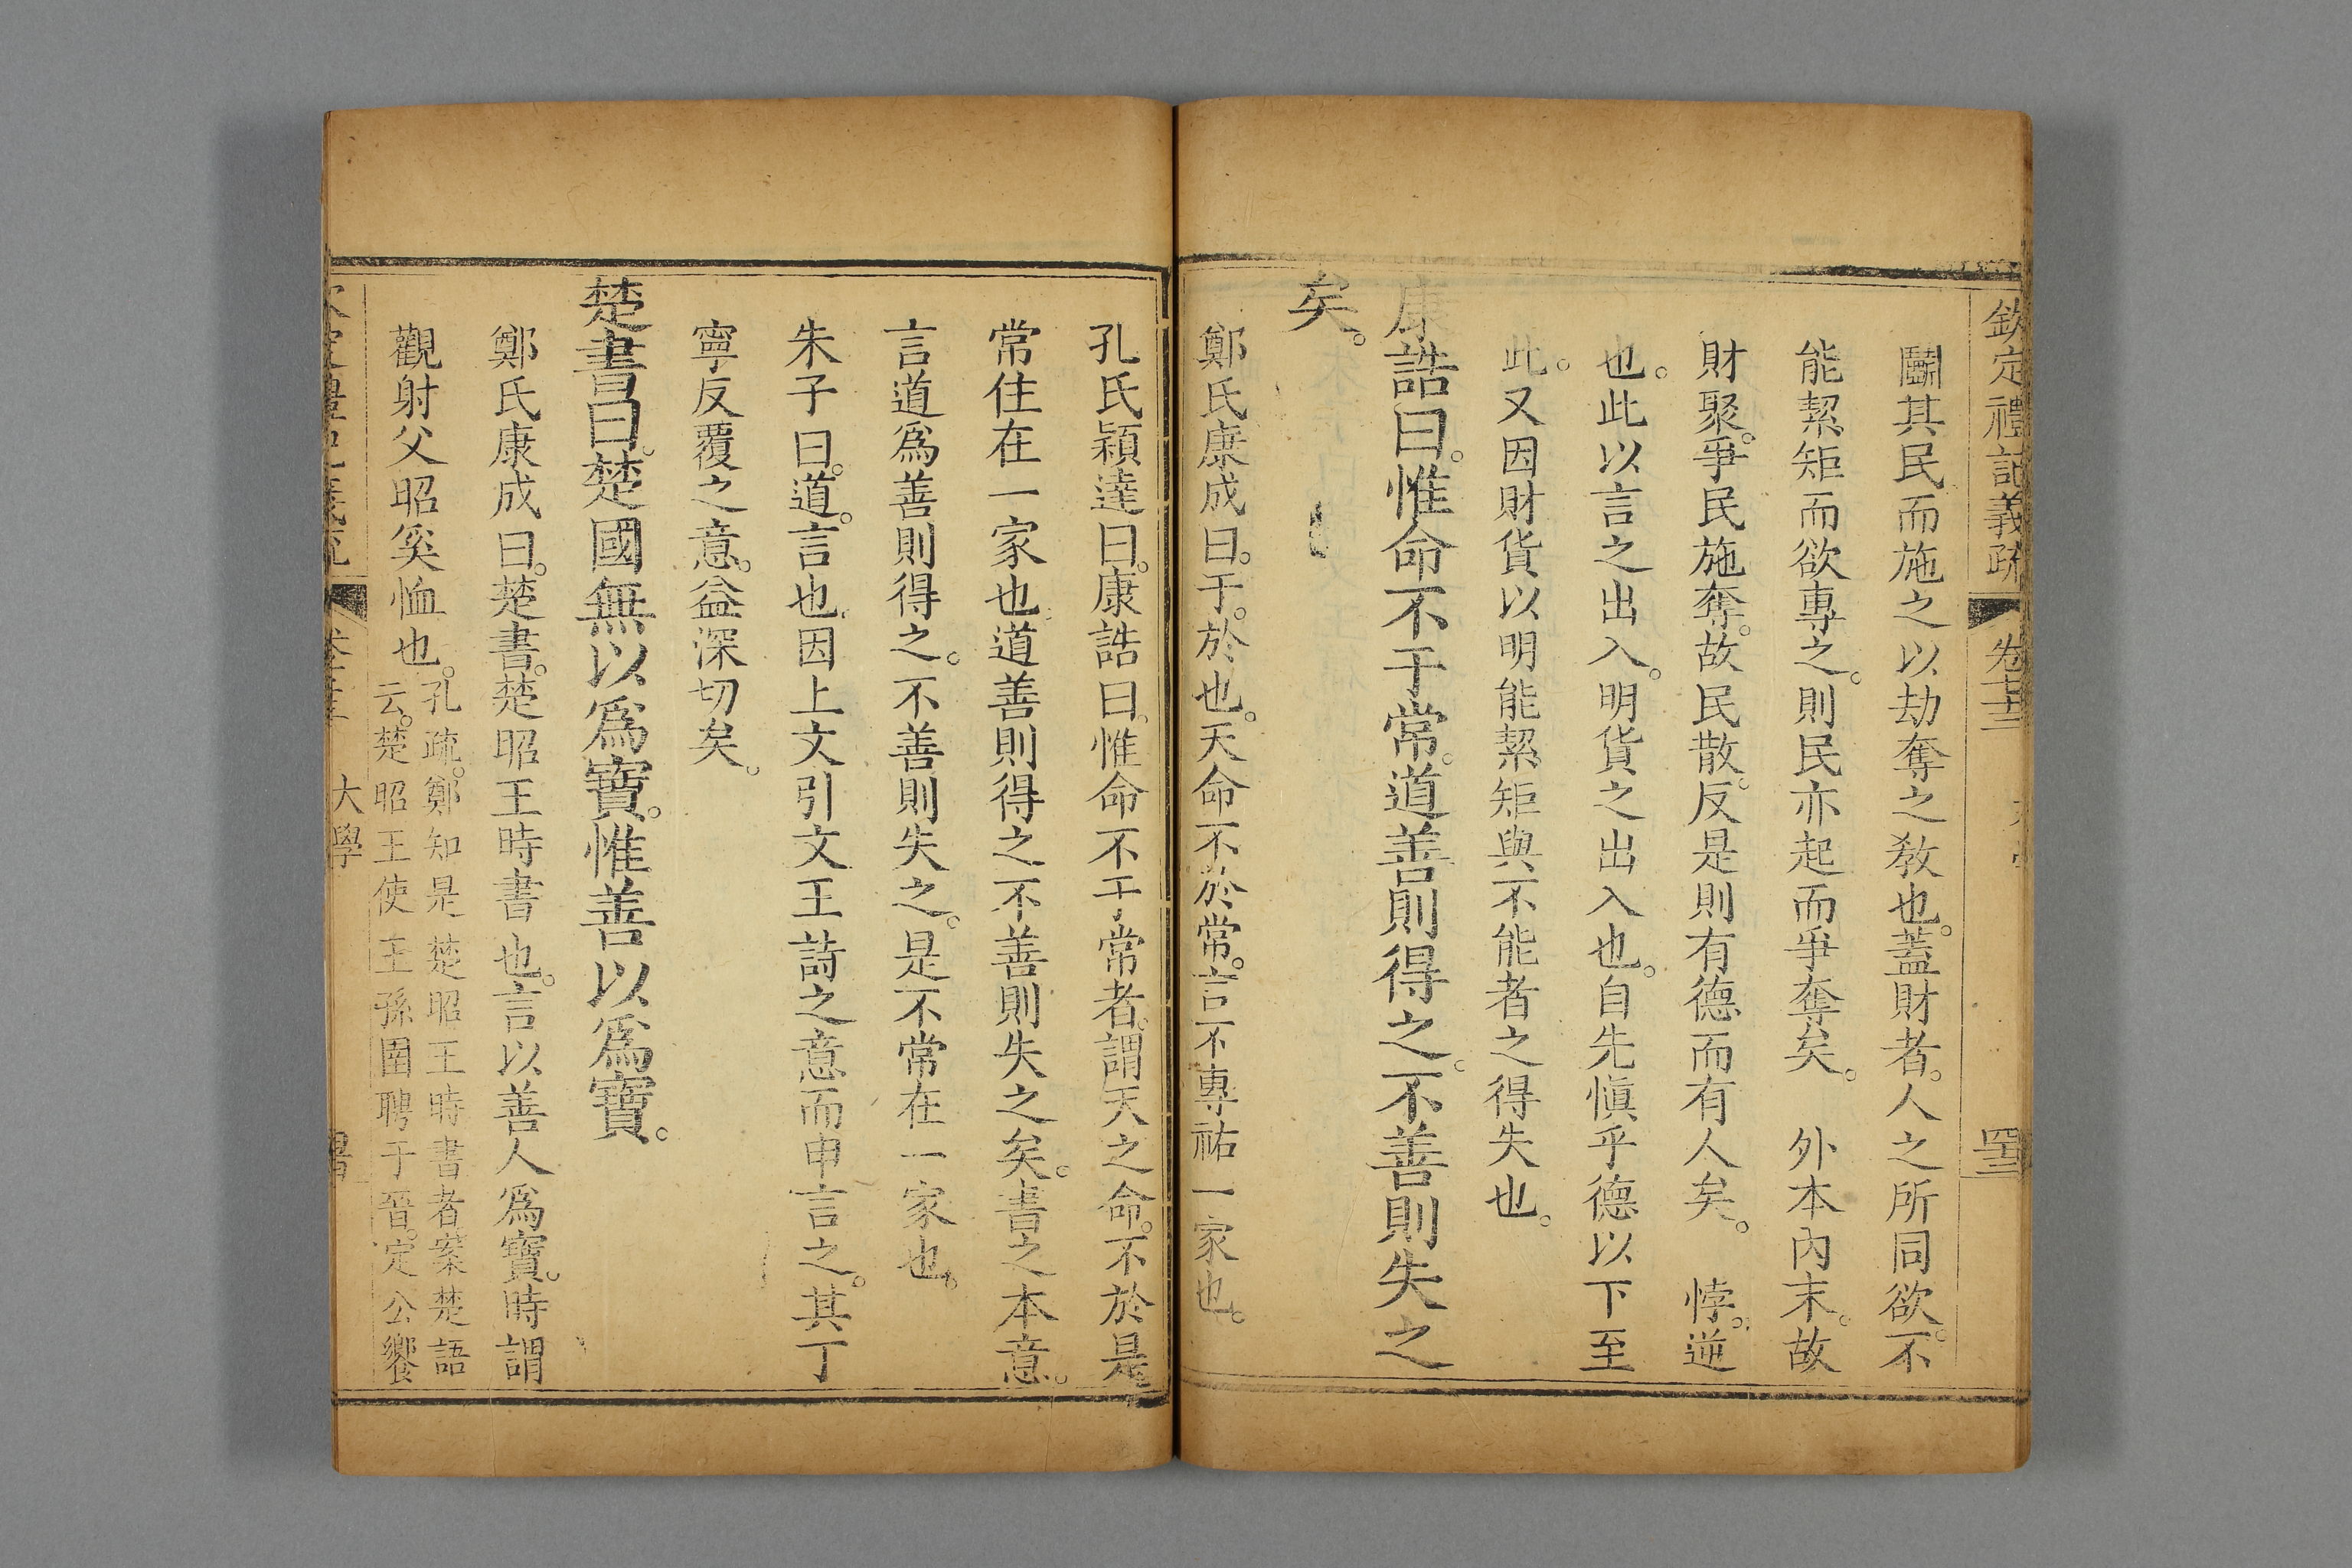 欽定禮記義疏 卷七十三 大學 四十三
鬭其民而施之以劫奪之教也。蓋財者。人之所同欲。不
能絜矩而欲專之。則民亦起而爭奪矣。 外本內末。故
財聚。爭民施奪。故民散。反是則有德而有人矣。 悖。逆
也。此以言之出入。明貨之出入也。自先愼乎德以下至
此。又因財貨以明能絜矩與不能者之得失也。
康誥曰。惟命不于常。道善則得之。不善則失之
矣。
鄭氏康成曰。于。於也。天命不於常。言不專祐一家也。
孔氏穎達曰。康誥曰。惟命不于常者。謂天之命。不於是
常住在一家也。道善則得之不善則失之矣。書之本意。
言道爲善則得之。不善則失之。是不常在一家也。
朱子曰。道。言也。因上文引文王詩之意而申言之。其丁
寧反覆之意。益深切矣。
楚書曰。楚國無以爲寶。惟善以爲寶。
鄭氏康成曰。楚書。楚昭王時書也。言以善人爲寶。時謂
觀射父昭奚恤也。孔疏。鄭知是楚昭王時書者案楚語
云。楚昭王使王孫圉聘于晉。定公饗
大學